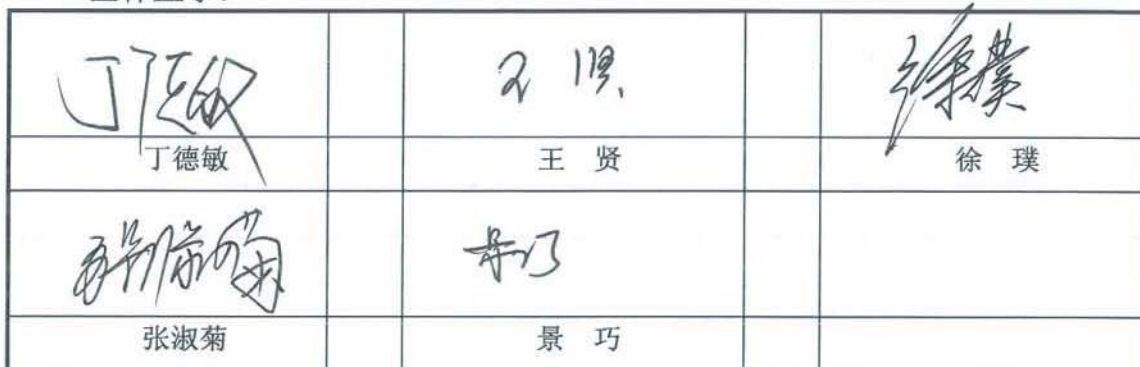 丁德敏 王贤 徐璞
丁德敏 王 贤 徐 璞
张淑菊 景巧
张淑菊 景 巧